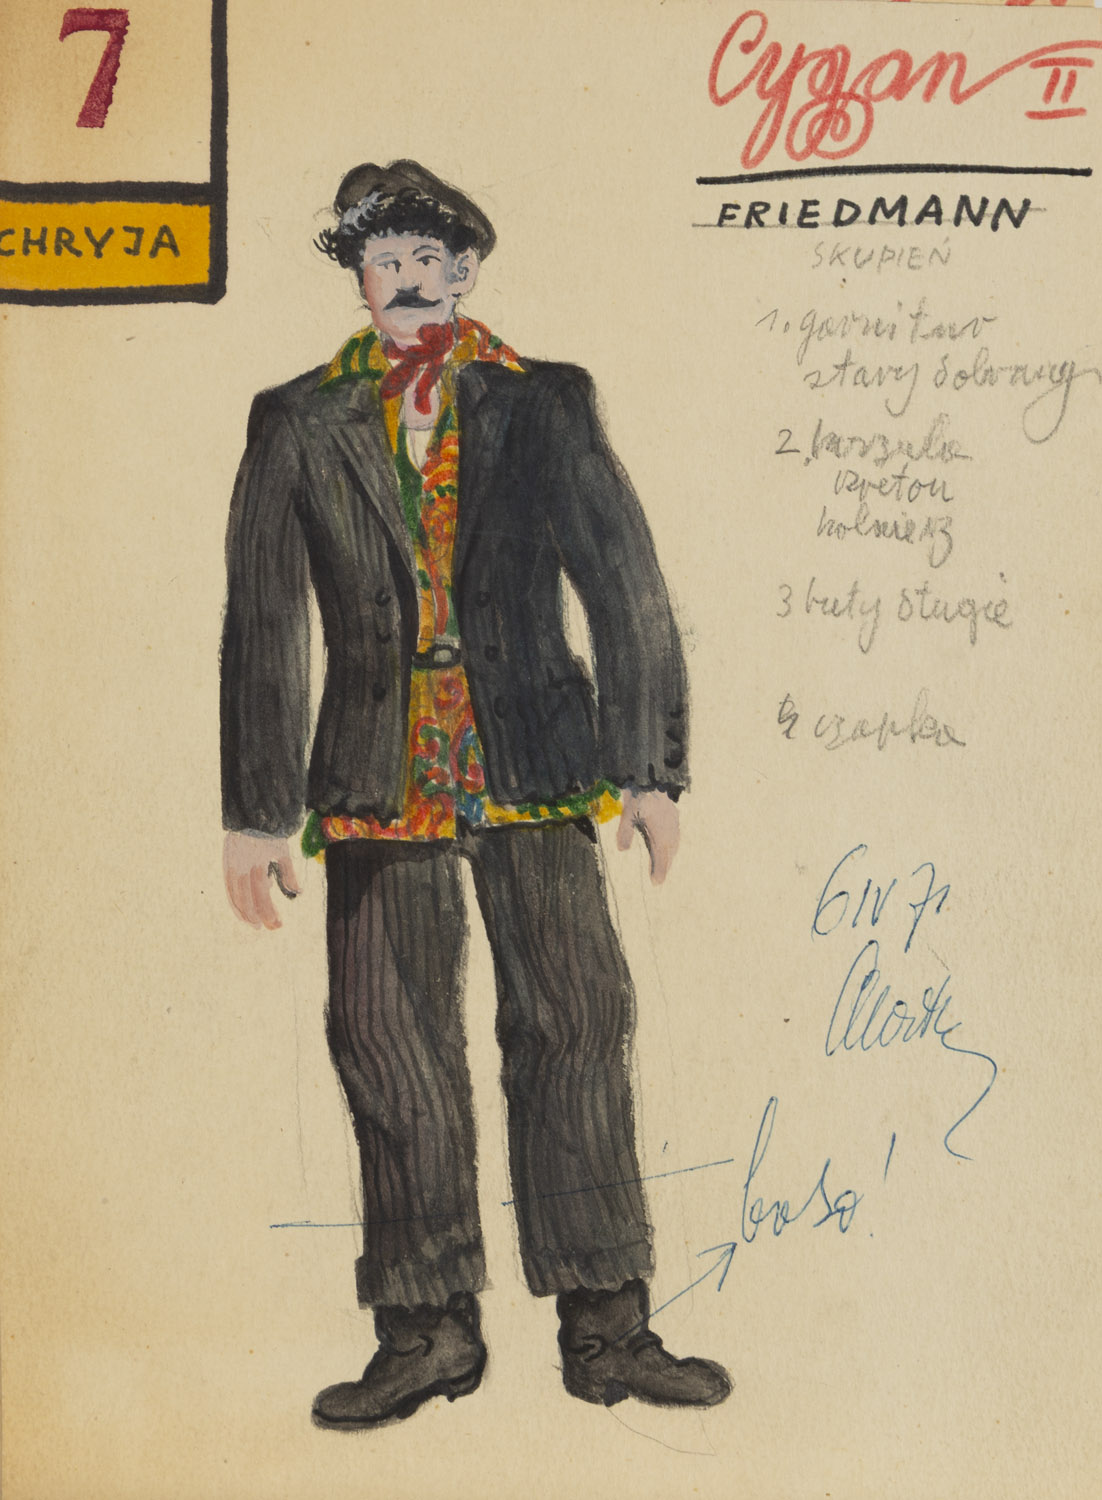 7
CHRYJA
Cygan II
FRIEDMANN
SKUPIEŃ
1. garnitur
stary dobrany
2. koszula
kreton
kołnierz
3 buty długie
4 czapka
6 IV 71
boso!